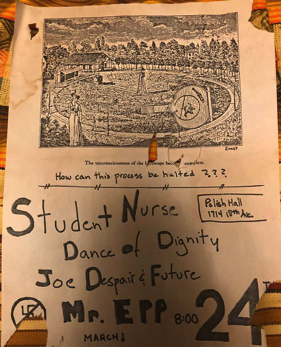 Ernst
The unconsciousness of the landscape becomes complete.
How can this process be halted ???
Student Nurse
Polish Hall
1714 18th Ave
Dance of Dignity
Joe Despair & Future
Mr. EPP 8:00 24
MARCH!